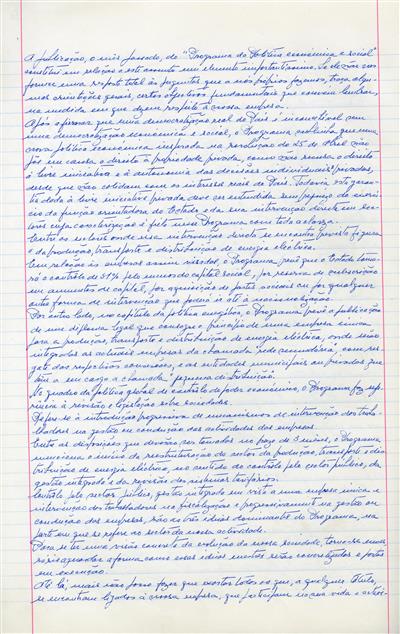 A publicação, o mês passado, do "Programa de Política económica e social"
constitui em relação a este assunto um elemento importantíssimo. Se não nos
fornece uma resposta total às perguntas que a nós próprios fazemos, traça algu-
mas orientações gerais, certos objectivos fundamentais que convém lembrar,
na medida em que dizem respeito à nossa empresa.
Após afirmar que uma democratização real do País é inconcebível sem
uma democratização económica e social, o Programa sublinha que uma
nova política económica inspirada na revolução de 25 de Abril não
põe em causa o direito à propriedade privada, como não recusa o direito
à livre iniciativa e à autonomia das decisões individuais e privadas,
desde que não colidam com os interesses reais do País. Todavia esta garan-
tia dada à livre iniciativa privada deve ser entendida sem prejuízo do exercí-
cio da função orientadora do Estado e da sua intervenção directa em sec-
tores cuja é pelo mesmo Programa com toda a clareza.
Entre os sectores onde essa intervenção directa se encontra prevista figura
o da produção, transporte e distribuição de energia eléctrica.
Em relação às empresas assim visadas, o Programa prevê que o Estado toma-
rá o controle de 51% pelo menos do capital social, por reserva de subscrição
em aumentos de capital, por aquisição de partes sociais ou por qualquer
outra forma de intervenção que poderá ir até à socialização.
Por outro lado, no capítulo da política energética, o Programa prevê a publicação
de um diploma legal que consagre o princípio de uma empresa única
para a produção, transporte e distribuição de energia eléctrica, onde são
integradas as actuais empresas da chamada rede secundária, com res-
gate das respectivas concessões, e as entidades municipais ou privadas que
têm a seu cargo a chamada pequena distribuição.
No quadro da política global de controle do poder económico, o Programa
a revisão e legislação sobre sociedades.
Refere-se à introdução progressiva de mecanismos de intervenção dos traba-
lhadores na gestão ou condução das actividades das empresas.
Entre as disposições que deverão ser tomadas no prazo de 3 meses, o Programa
menciona o início da reestruturação do sector da produção, transporte e dis-
tribuição de energia eléctrica, no sentido do controle pelo sector público, da
gestão integrada e da revisão dos sistemas tarifários.
Controle pelo sector público, gestão integrada com vista a uma empresa única e
intervenção dos trabalhadores na fiscalização e progressivamente na gestão ou
condução das empresas, são as três ideias dominantes do Programa, na
parte em que se refere ao sector da nossa actividade.
Para se ter uma visão concreta da evolução da nossa sociedade, torna-se neces-
sário aguardar a forma como essas ideias mestras serão concretizadas e postas
em execução.
Até lá, mais não posso fazer que exortar todos os que, a qualquer título,
se encontram ligados à nossa empresa, que participem na sua vida e activi-